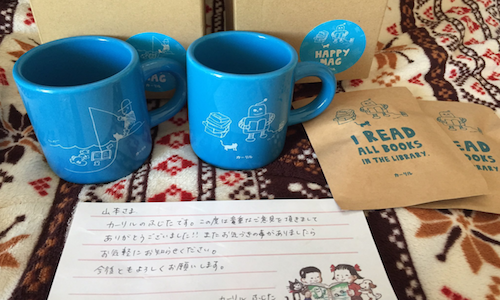 HAPPY
MAG
カーリル
I READ
ALL BOOKS
IN THE LIBRARY.
カーリル
BOOKS
LIBRARY.
山本さま
カーリルのふじたです。この度は貴重なご意見を頂きまして
ありがとうございました!! またお気づきの事がありましたら
お気軽にお知らせください。
今後ともよろしくお願いします。
カーリル ふじた